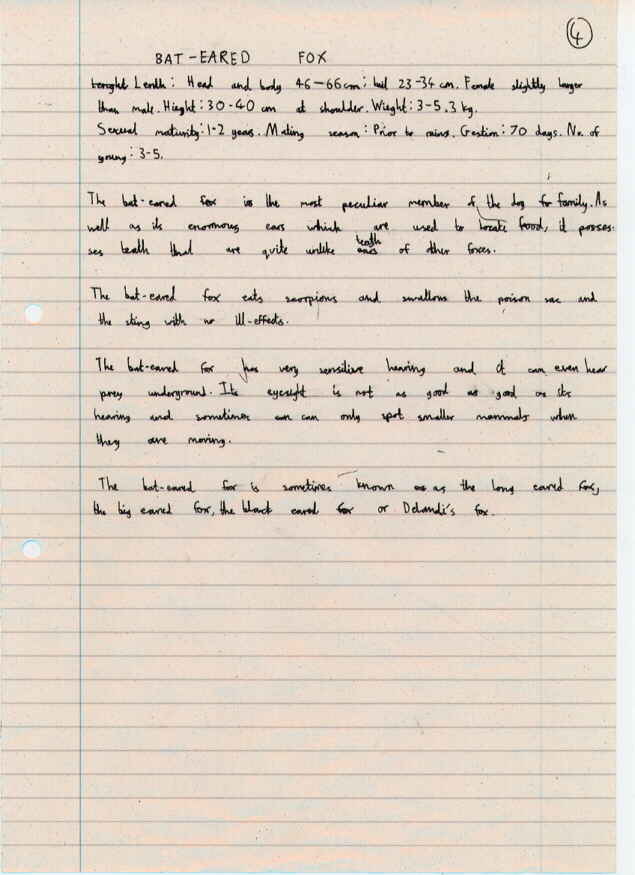 4
BAT-EARED FOX
Lenght Lenth: Head and body 46-66cm; tail 23-34 cm. Female slightly larger
than male. Hieght: 30-40 cm at shoulder. Wieght: 3-5.3 kg.
Sexual maturity: 1-2 years. Mating season: Prior to rains. Gestion: 70 days. No. of
young: 3-5.
The bat-eared fox is the most peculiar member of the dog family. As
well as its enormous ears which are used to locate food, it posses-
ses teath that are quite unlike teath of other foxes.
The bat-eared fox eats scorpions and swallows the poison sac and
the sting with no ill-effects.
The bat-eared fox has very sensitive hearing and it can even hear
prey underground. Its eyesight is not as good as good as its
hearing and sometimes can only spot smaller mammals when
they are moving.
The bat-eared fox is sometimes known as as the long eared fox,
the big eared fox, the black eared fox or Delandi's fox.